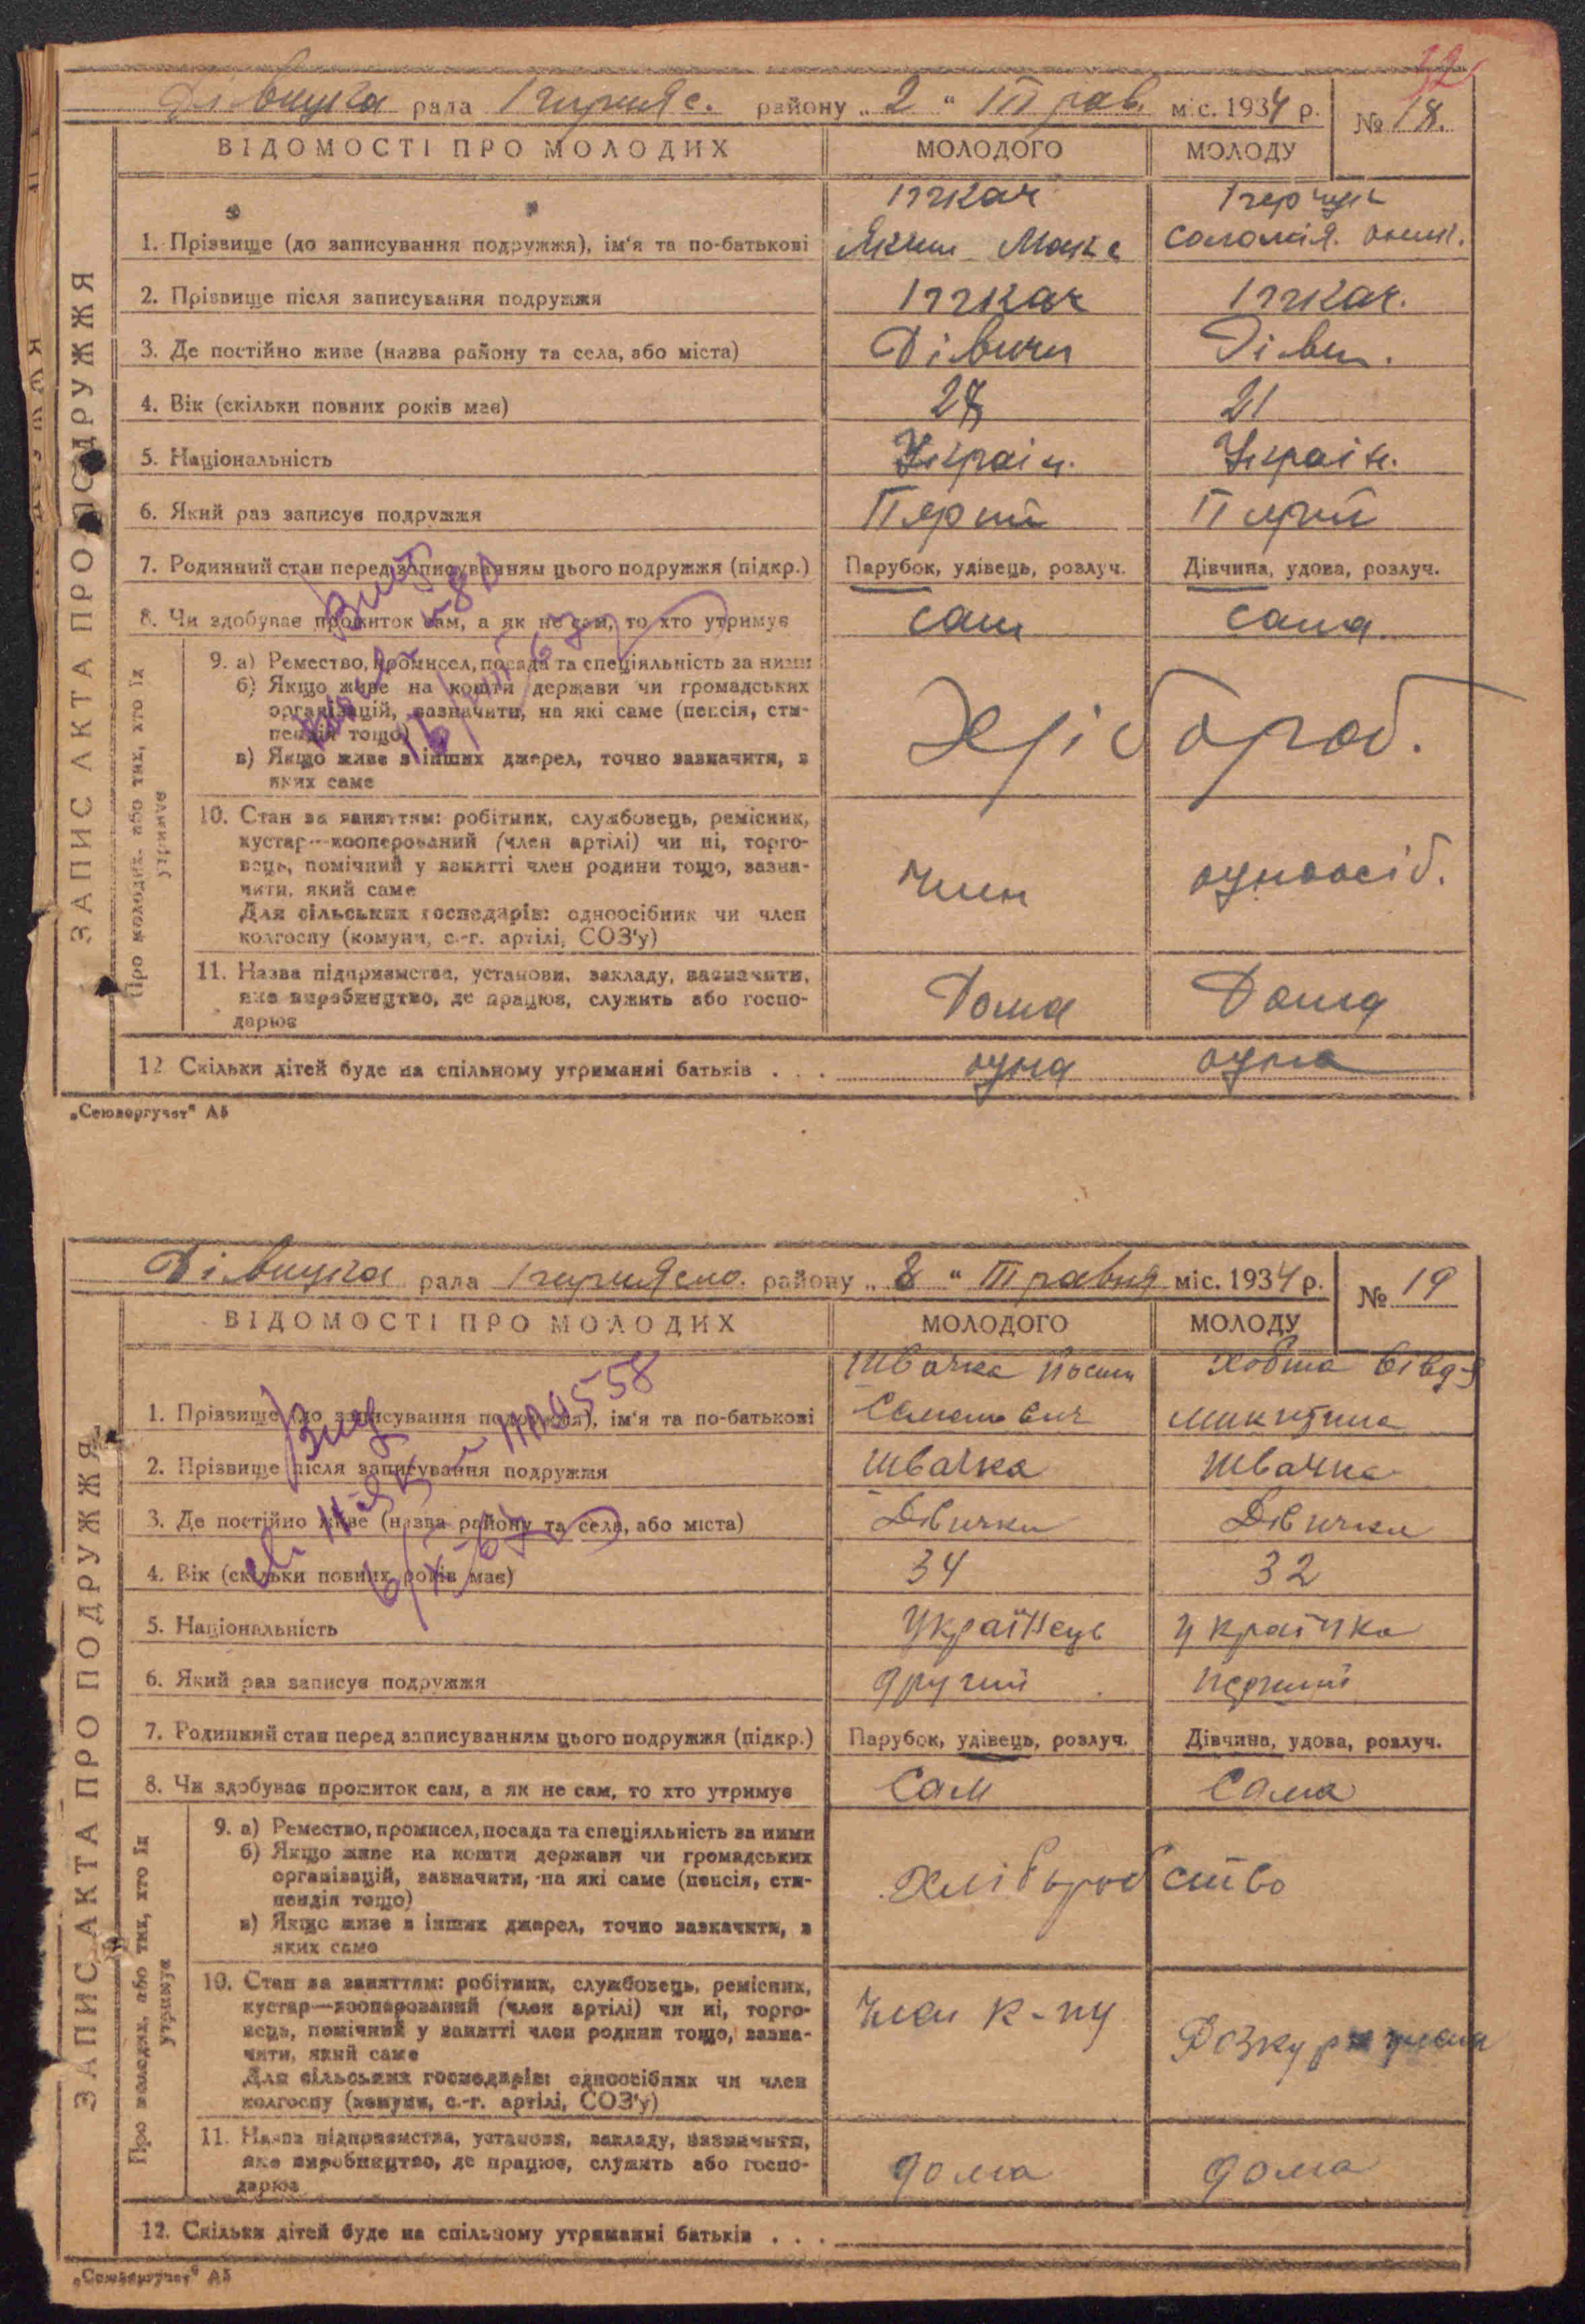 32
Дівицька рада району „2“ Травн. міс. 1934 р. № 18.
ЗАПИС АКТА ПРО ПОДРУЖЖЯ
ВІДОМОСТІ ПРО МОЛОДИХ МОЛОДОГО МОЛОДУ
Ткач
1. Прізвище (до записування подружжя), ім'я та по-батькові Яким Соломія
2. Прізвище після записування подружжя Ткач Ткач.
3. Де постійно живе (назва району та села, або міста) Дівички Дівич.
4. Вік (скільки повних років має) 21
5. Національність Україн. Україн.
6. Який раз записує подружжя Перший Перший
7. Родинний стан перед записуванням цього подружжя (підкр.) Парубок, удівець, розлуч. Дівчина, удова, розлуч.
8. Чи здобуває прожиток сам, а як не сам, то хто утримує сам сама
Про молодих, або тих, хто їх утримує
9. а) Ремество, промисел, посада та спеціяльність за ними
б) Якщо живе на кошти держави чи громадських
організацій, зазначити, на які саме (пенсія, сти-
пендія тощо)
в) Якщо живе з інших джерел, точно зазначити, з
яких саме
Хлібороб.
10. Стан за заняттям: робітник, службовець, ремісник,
кустар—кооперований (член артілі) чи ні, торго-
вець, помічний у занятті член родини тощо, зазна-
чити, який саме
Для сільських господарів: одноосібник чи член
колгоспу (комуни, с.-г. артілі, СОЗ'у)
член одноосіб.
11. Назва підприємства, установи, закладу, зазначити,
яке виробництво, де працює, служить або госпо-
дарює
Дома Дома
12 Скільки дітей буде на спільному утриманні батьків . . . одна одна
„Союзоргучет“ А5
Дівицька рада району „8“ Травня міс. 1934 р. № 19
ЗАПИС АКТА ПРО ПОДРУЖЖЯ
ВІДОМОСТІ ПРО МОЛОДИХ МОЛОДОГО МОЛОДУ
Швачка Йосип Ховта Івд-я
1. Прізвище (до записування подружжя), ім'я та по-батькові Микитина
2. Прізвище після записування подружжя Швачка Швачка
3. Де постійно живе (назва району та села, або міста) Дівички Дівички
4. Вік (скільки повних років має) 34 32
5. Національність Українець Українка
6. Який раз записує подружжя другий перший
7. Родинний стан перед записуванням цього подружжя (підкр.) Парубок, удівець, розлуч. Дівчина, удова, розлуч.
8. Чи здобуває прожиток сам, а як не сам, то хто утримує Сам Сама
Про молодих, або тих, хто їх утримує
9. а) Ремество, промисел, посада та спеціяльність за ними
б) Якщо живе на кошти держави чи громадських
організацій, зазначити, на які саме (пенсія, сти-
пендія тощо)
в) Якщо живе з інших джерел, точно зазначити, з
яких саме
Хліборобство
10. Стан за заняттям: робітник, службовець, ремісник,
кустар—кооперований (член артілі) чи ні, торго-
вець, помічний у занятті член родини тощо, зазна-
чити, який саме
Для сільських господарів: одноосібник чи член
колгоспу (комуни, с.-г. артілі, СОЗ'у)
член к-пу
11. Назва підприємства, установи, закладу, зазначити,
яке виробництво, де працює, служить або госпо-
дарює
дома дома
12. Скільки дітей буде на спільному утриманні батьків . . .
„Союзоргучет“ А5